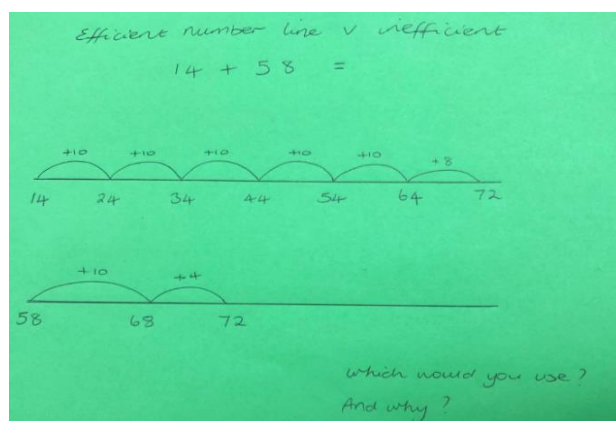 Efficient number line v inefficient
14 + 58 =
+10 +10 +10 +10 +10 +8
14 24 34 44 54 64 72
+10 +4
58 68 72
Which would you use?
And why?